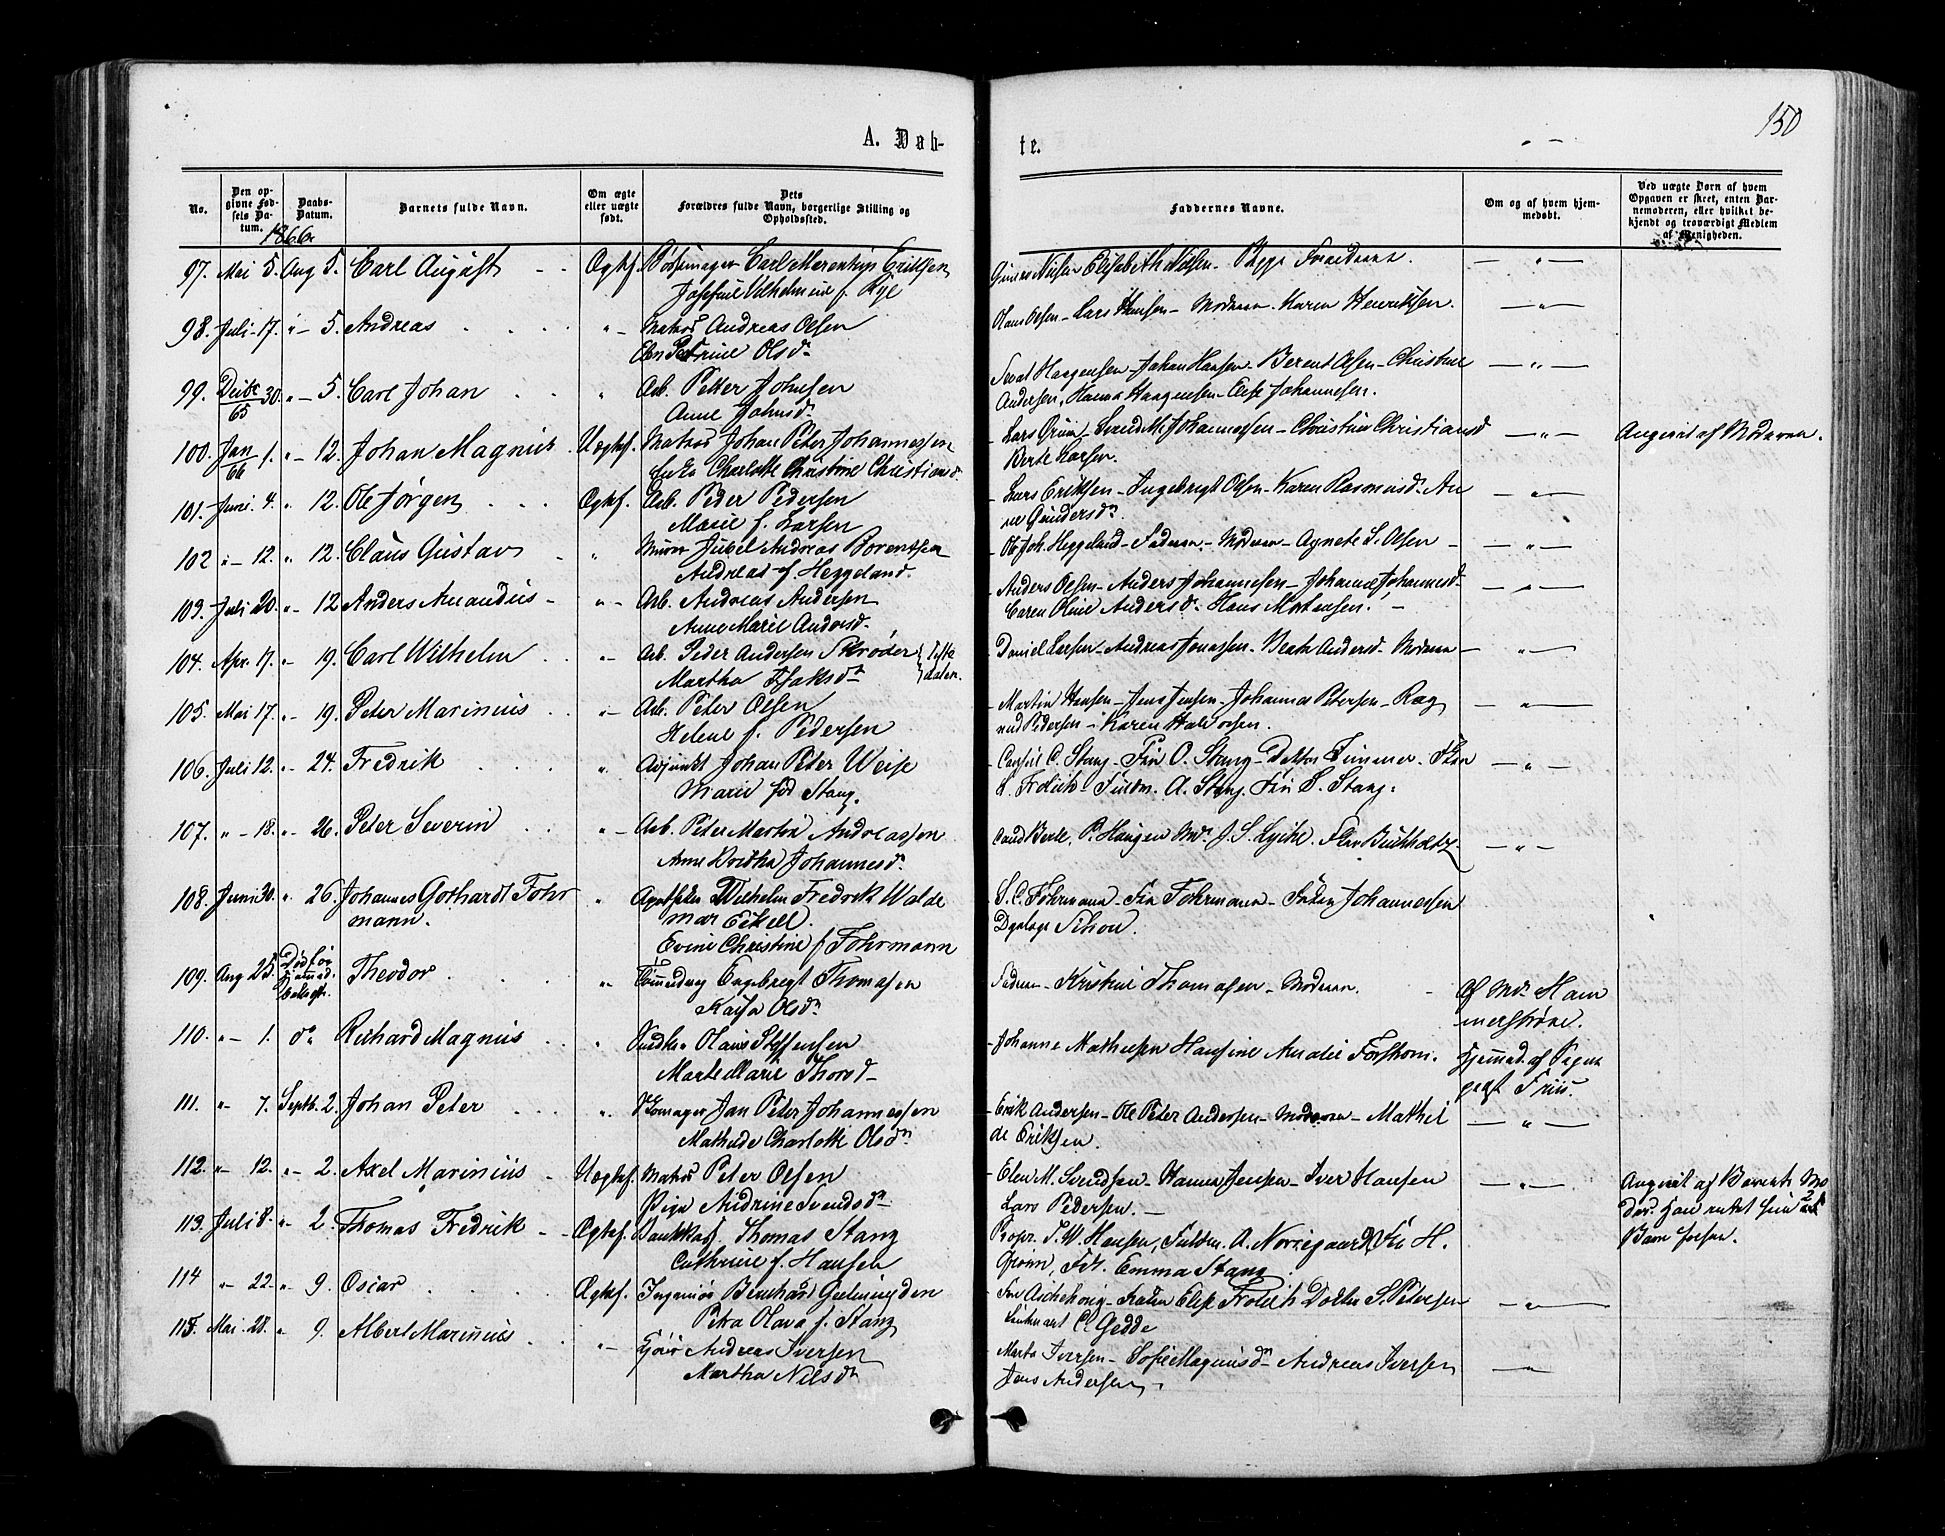 150
A. Døb-
te.
No.
Den opgivne Fødsels Datum.
Daabs-Datum.
Barnets fulde Navn.
Om ægte eller uægte født.
Dets Forældres fulde Navn, borgerlige Stilling og Opholdssted.
Faddernes Navne.
Om og af hvem hjemmedøbt.
Ved uægte Børn af hvem Opgaven er skeet, enten Barnemoderen, eller hvilket bekjendt og troværdigt Medlem af Menigheden.
1866
97. Mai 5. Aug 5. Carl August - - Ægtef. Carl Eriksen
Josefine Vilhelmine f. Rye
Nielsen Elisabeth Nielsen - Begge Forældrene. — " —
98. Juli 17. " - 5. Andreas " - Matros Andreas Olsen
Elen Petrine Olsdr
Olaus Olsen - Lars Hansen - Moderen - Karen Henriksen. — " —
99. Decbr 65 30. " - 5. Carl Johan " Arb. Petter Johnsen
Anne Johnsdr
Haagensen - Johan Hansen - Berent Olsen - Christine — " —
Andersen, Hanna Haagensen - Else Johannesen.
100. Jan 66 1. " - 12. Johan Magnus Uægtef. Matros Johan Peter Johannessen
Charlotte Christine Christiansd.
Lars Johannessen - Christine Christiansd — " — Angivet af Moderen.
Berte Larsen.
101. Juni 4. " 12. Ole Jørgen Ægtef. Arb. Peder Pedersen
Marie f. Larsen
- Lars Eriksen - Ingebregt Olsen - Karen Rasmusdr An — " —
ne Gundersdr
102 " - 12. " 12. Claus Gustav " Murer Juel Andreas Borentsen
Andrea f. Heggeland.
- Ole Joh. Heggeland - Faderen - Moderen - Agnete L. Olsen - — " —
103. Juli 20. " - 12 Anders Amandus - " - Arb. Andreas Andersen
Anne Marie Andersd.
- Anders Olsen - Anders Johannesen - Johanne Johannesd - — " —
Caren Oline Andersd - Hans Mortensen. -
104. Apr. 17. " - 19. Carl Wilhelm " - Arb. Peder Andersen Schrøder
Martha Isaksdr
- Daniel Larsen - Andreas Jonassen - Beate Andersd - Moderen — " —
105. Mai 17. " - 19. Peter Marinius " - Arb. Peter Olsen
Helene f. Pedersen
- Martin Hansen - Jens Jensen - Johannes Petersen - Rag — " —
nild Pedersen - Karen Halvorsen.
106. Juli 12. " - 24. Fredrik " Adjunkt Johan Peter Weise
Marie fød Stang.
Consul C. Stang - Frøken O. Stang - Doktor - — " —
A. Stang. S. Stang.
107. " - 18. " - 26. Peter Severin " - Arb. Peter Martin Andreassen
Anne Dorthea Johannesdr
Haugen - — " —
108. Juni 30. " 26. Johannes Gothardt Fohr " Apotheker Wilhelm Fredrik Walde
mann. mar Eckell.
Evine Christine f. Fohrmann
S. C. Fohrmann - Fru Fohrmann - Johannessen
109. Aug 25. Theodor " Tømmermand Engebregt Thomasen
Kaisa Olsdr
Faderen - Kristine Thomasen - Moderen. - Af Mdr. Ham
merstrøm.
110. " - 1. do Richard Magnus " Snedker Olaus Steffensen
Marte Marie Thorsd -
- Johanne Mathiesen Hansine Amalie Forsbom. Hjemmed. af
Friis.
111. " - 7. Septb. 2. Johan Peter " Skomager Jan Peter Johannessen
Mathilde Charlotte Olsdr
- Erik Andersen - Ole Peter Andersen - Moderen - Mathil — " —
de Eriksen.
112. " - 12. " - 2. Axel Marinius - Uægtef. Matros Peter Olsen
Pige Andrine Svendsdr
- Elen M. Svendsen - Hanna Jensen - Iver Hansen — " — Angivet af Barnets Mo
Lars Pedersen. - der. Han
113. Juli 8. " - 2. Thomas Fredrik - - Ægtef. Bankkass. Thomas Stang
Cathrine f. Hansen
Propr. Hansen, Fuldm. A. Nørregaard, H.
Grønn, Emma Stang.
114 " - 22. " 9. Oscar Ægtef. Ingeniør Bernhard
Petra Olava f. Stang
Elise Doktor S. Petersen — " —
C. Gedde
115. Mai. 28. " 9. Albert Marinius " - Andreas Iversen
Martha Nilsdr
Marta Iversen - Sofie Magnusdr Andreas Iversen — " —
Jens Andersen. -